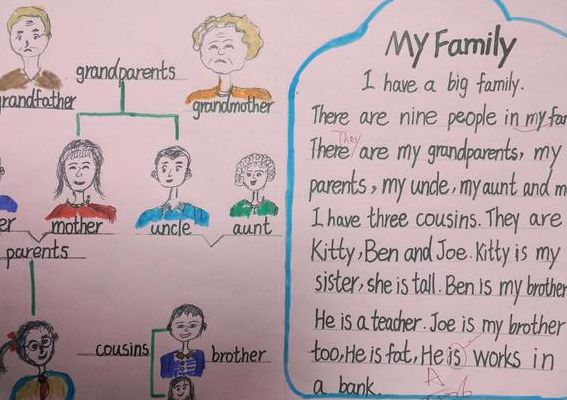 grandparents
grandfather
grandmother
mother
uncle
aunt
parents
cousins
brother
My Family
I have a big family.
There are nine people in my
They
There are my grandparents, my
parents, my unde, my aunt and
I have three cousins. They are
Kitty, Ben and Joe. Kitty is my
sister, she is tall. Ben is my brother
He is a teacher. Joe is my brother
too, He is fat, He is works in
a bank.